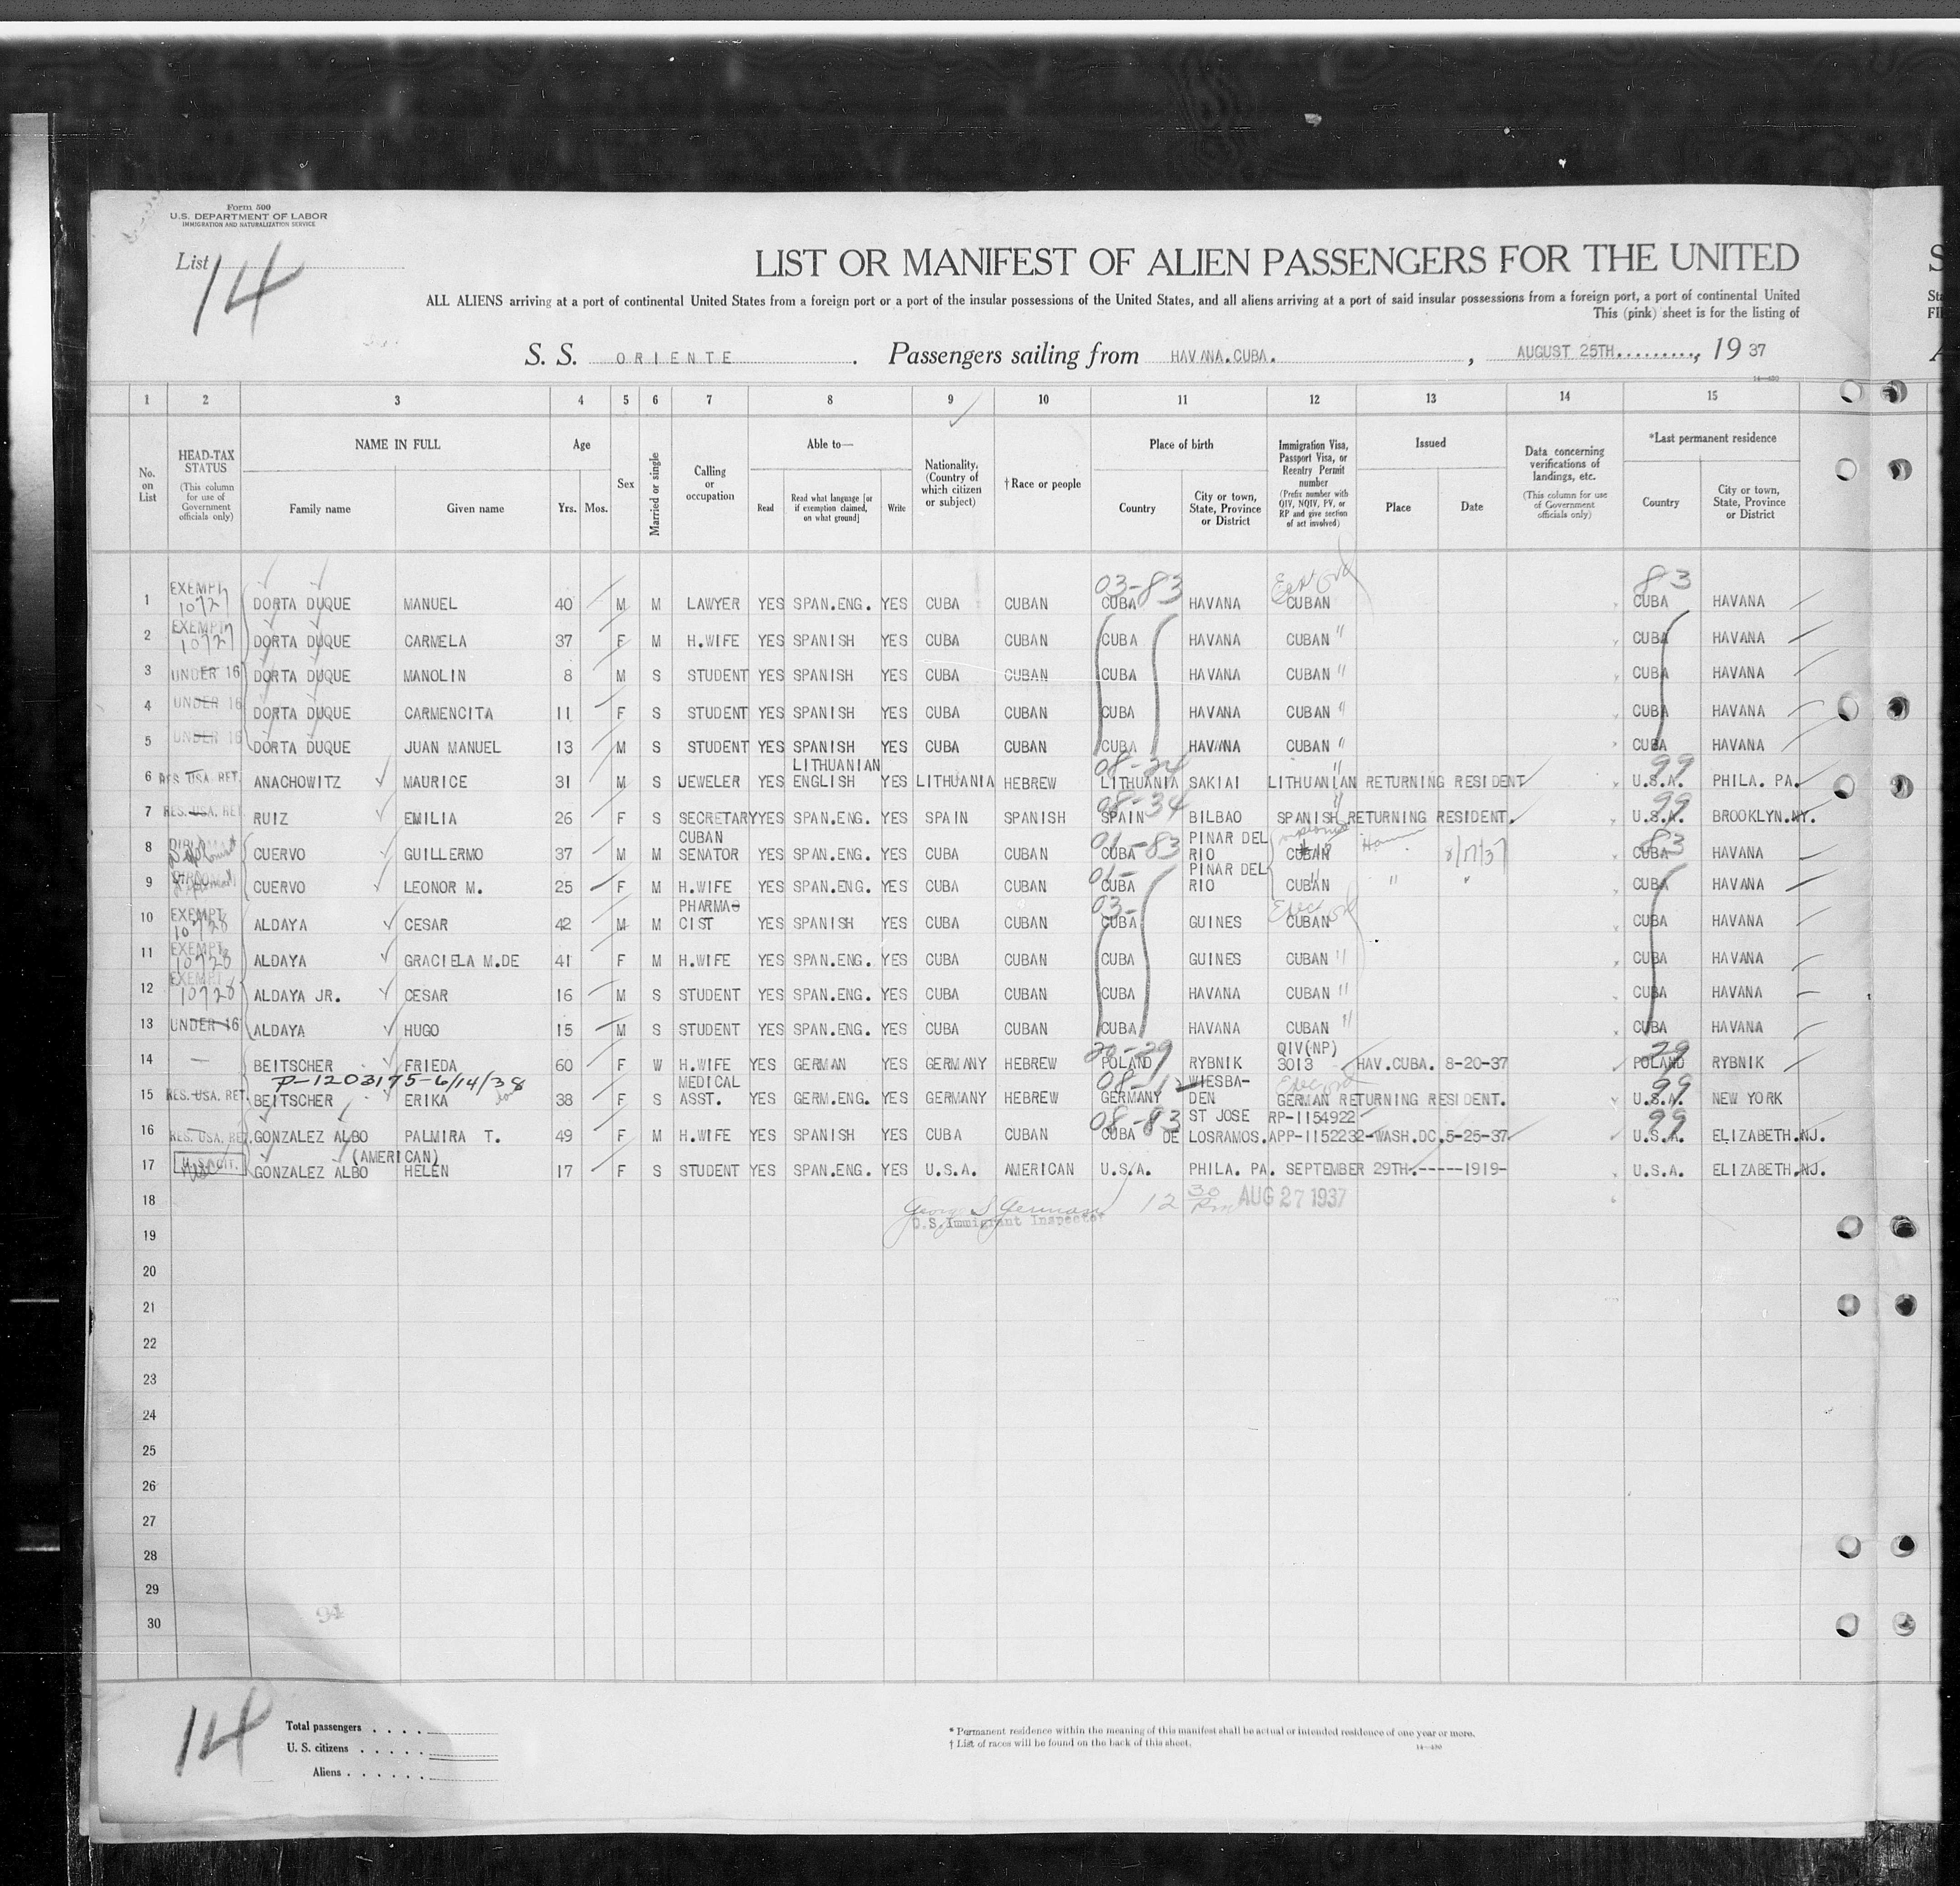 Form 500
U.S. DEPARTMENT OF LABOR
IMMIGRATION AND NATURALIZATION SERVICE
List 14
LIST OR MANIFEST OF ALIEN PASSENGERS FOR THE UNITED
ALL ALIENS arriving at a port of continental United States from a foreign port or a port of the insular possessions of the United States, and all aliens arriving at a port of said insular possessions from a foreign port, a port of continental United
This (pink) sheet is for the listing of
S. S. ORIENTE . Passengers sailing from HAVANA.CUBA. , AUGUST 25TH........., 19 37
1 2 3 4 5 6 7 8 9 10 11 12 13 14 15
No. on List
HEAD-TAX STATUS (This column for use of Government officials only)
NAME IN FULL Family name Given name
Age Yrs. Mos.
Sex
Married or single
Calling or occupation
Able to— Read Read what language [or if exemption claimed, on what ground] Write
Nationality. (Country of which citizen or subject)
†Race or people
Place of birth Country City or town, State, Province or District
Immigration Visa, Passport Visa, or Reentry Permit number (Prefix number with QIV, NQIV, PV, or RP and give section of act involved)
Issued Place Date
Data concerning verifications of landings, etc. (This column for use of Government officials only)
*Last permanent residence Country City or town, State, Province or District
03-83 83
1 EXEMPT DORTA DUQUE MANUEL 40 M M LAWYER YES SPAN.ENG. YES CUBA CUBAN CUBA HAVANA CUBAN CUBA HAVANA
2 EXEMPT DORTA DUQUE CARMELA 37 F M H.WIFE YES SPANISH YES CUBA CUBAN CUBA HAVANA CUBAN " CUBA HAVANA
3 UNDER 16 DORTA DUQUE MANOLIN 8 M S STUDENT YES SPANISH YES CUBA CUBAN CUBA HAVANA CUBAN " CUBA HAVANA
4 UNDER 16 DORTA DUQUE CARMENCITA 11 F S STUDENT YES SPANISH YES CUBA CUBAN CUBA HAVANA CUBAN " CUBA HAVANA
5 UNDER 16 DORTA DUQUE JUAN MANUEL 13 M S STUDENT YES SPANISH YES CUBA CUBAN CUBA HAVANA CUBAN " CUBA HAVANA
LITHUANIAN 99
6 RES. USA. RET. ANACHOWITZ MAURICE 31 M S JEWELER YES ENGLISH YES LITHUANIA HEBREW LITHUANIA SAKIAI LITHUANIAN RETURNING RESIDENT U.S.A. PHILA. PA.
08-34 99
7 RES. USA. RET RUIZ EMILIA 26 F S SECRETARY YES SPAN.ENG. YES SPAIN SPANISH SPAIN BILBAO SPANISH RETURNING RESIDENT. U.S.A. BROOKLYN.NY.
CUBAN 01-83 PINAR DEL 83
8 CUERVO GUILLERMO 37 M M SENATOR YES SPAN.ENG. YES CUBA CUBAN CUBA RIO CUBAN 8/17/37 CUBA HAVANA
01- PINAR DEL
9 CUERVO LEONOR M. 25 F M H.WIFE YES SPAN.ENG. YES CUBA CUBAN CUBA RIO CUBAN " " CUBA HAVANA
PHARMA- 03-
10 EXEMPT 10728 ALDAYA CESAR 42 M M CIST YES SPANISH YES CUBA CUBAN CUBA GUINES CUBAN CUBA HAVANA
11 EXEMPT 10728 ALDAYA GRACIELA M.DE 41 F M H.WIFE YES SPAN.ENG. YES CUBA CUBAN CUBA GUINES CUBAN " CUBA HAVANA
12 EXEMPT 10728 ALDAYA JR. CESAR 16 M S STUDENT YES SPAN.ENG. YES CUBA CUBAN CUBA HAVANA CUBAN " CUBA HAVANA
13 UNDER 16 ALDAYA HUGO 15 M S STUDENT YES SPAN.ENG. YES CUBA CUBAN CUBA HAVANA CUBAN " CUBA HAVANA
QIV(NP) 29
14 — BEITSCHER FRIEDA 60 F W H.WIFE YES GERMAN YES GERMANY HEBREW POLAND RYBNIK 3013 HAV.CUBA. 8-20-37 POLAND RYBNIK
P-1203175-6/14/38 MEDICAL WIESBA- 99
15 RES. USA. RET. BEITSCHER ERIKA 38 F S ASST. YES GERM.ENG. YES GERMANY HEBREW GERMANY DEN GERMAN RETURNING RESIDENT. U.S.A. NEW YORK
08-83 ST JOSE RP-1154922- 99
16 RES. USA. RET. GONZALEZ ALBO PALMIRA T. 49 F M H.WIFE YES SPANISH YES CUBA CUBAN CUBA DE LOSRAMOS.APP-1152232-WASH.DC.5-25-37 U.S.A. ELIZABETH.NJ.
(AMERICAN)
17 GONZALEZ ALBO HELEN 17 F S STUDENT YES SPAN.ENG. YES U.S.A. AMERICAN U.S.A. PHILA. PA. SEPTEMBER 29TH.-----1919- U.S.A. ELIZABETH.NJ.
18 12 30 Pm AUG 27 1937
U.S. Immigrant Inspector
19
20
21
22
23
24
25
26
27
28
29
30
94
14
Total passengers . . . .
U. S. citizens . . . . .
Aliens . . . . . .
* Permanent residence within the meaning of this manifest shall be actual or intended residence of one year or more.
† List of races will be found on the back of this sheet.
14—430